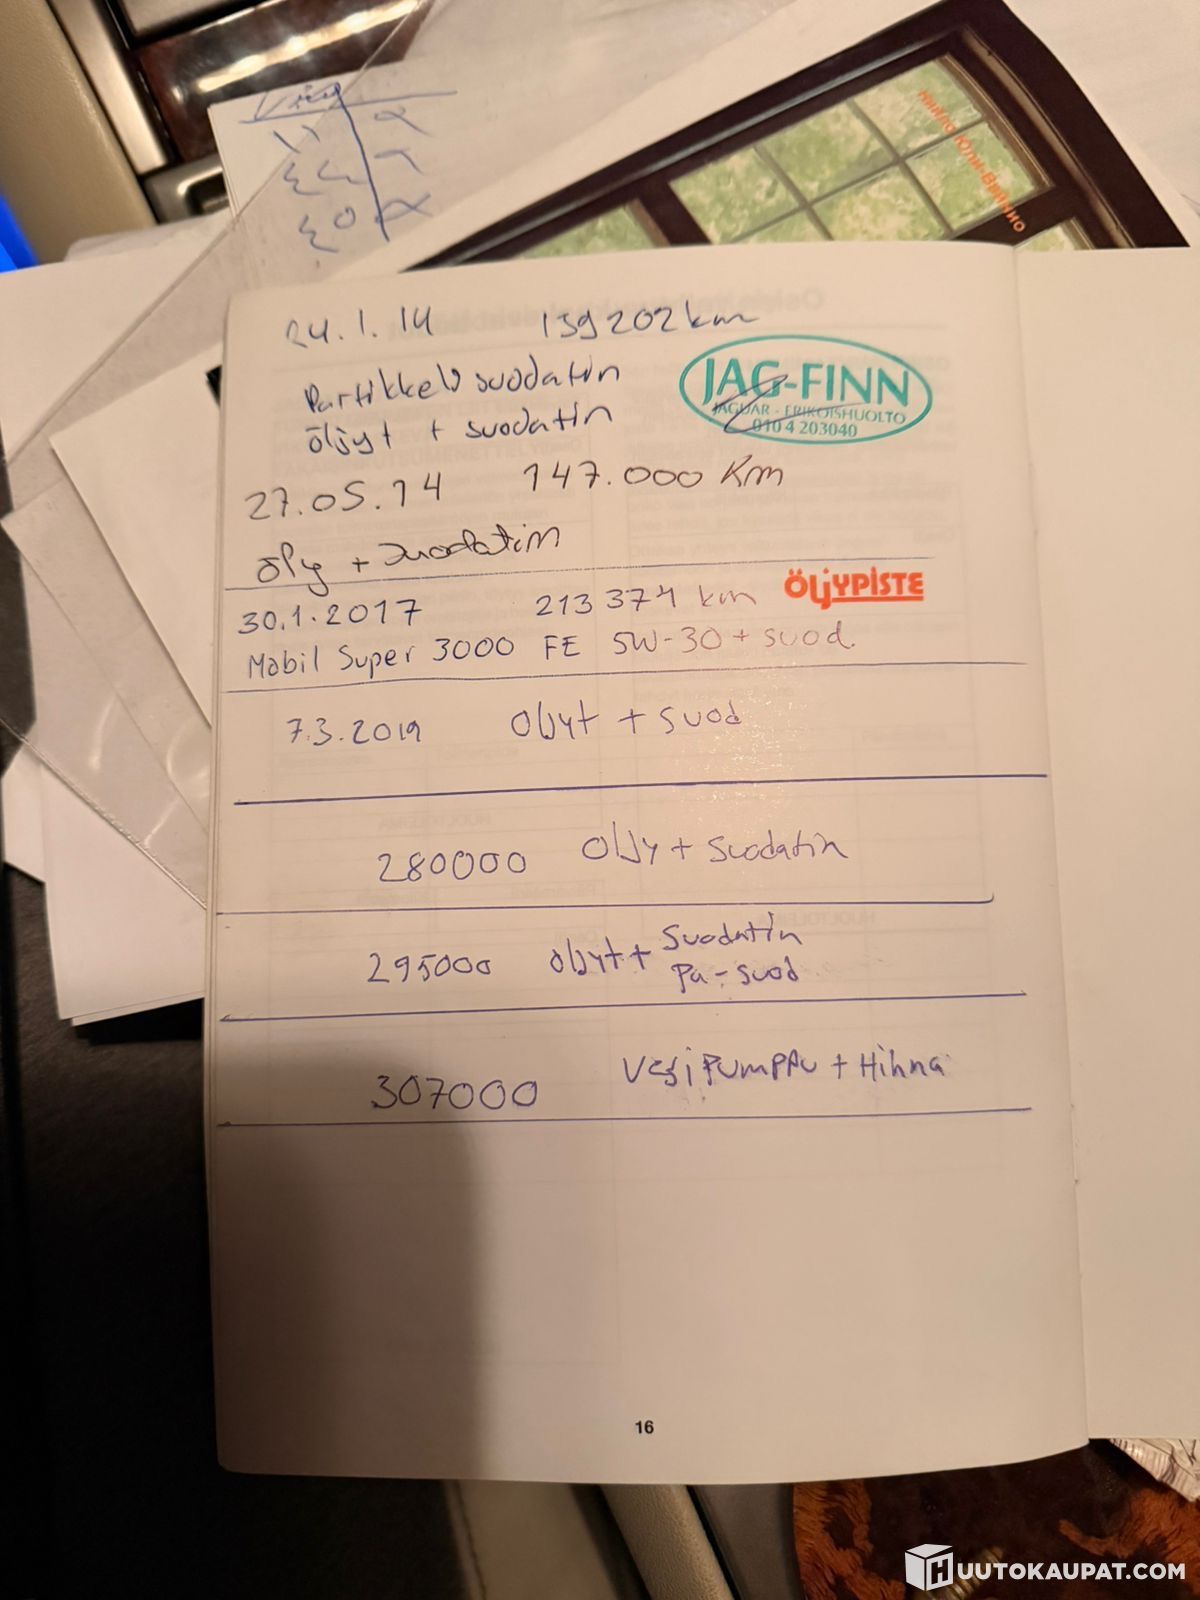 24.1.14 139202 km
Partikkelisuodatin
öljyt + suodatin
JAG-FINN
JAGUAR - ERIKOISHUOLTO
010 4 203040
27.05.14 147.000 Km
öljy + suodatin
30.1.2017 213 374 km ÖLJYPISTE
Mobil Super 3000 FE 5W-30 + suod.
7.3.2019 Öljyt + suod
280000 Öljy + Suodatin
295000 öljyt + Suodatin
Pa-suod
307000 Vesipumppu + Hihna
16
HUUTOKAUPAT.COM